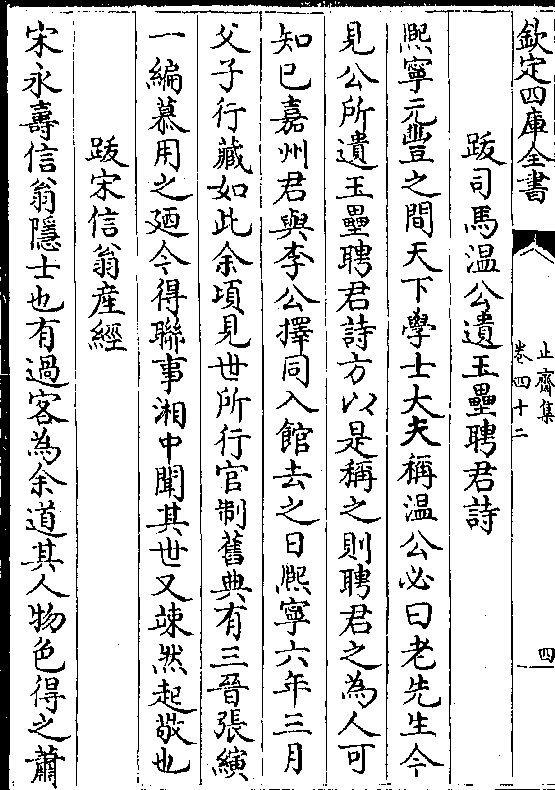 欽定四庫全書
止齋集
卷四十二
四
跋司馬溫公遺玉壘聘君詩
熈寧元豐之間天下學士大夫稱温公必曰老先生今
見公所遺玉壘聘君詩方以是稱之則聘君之為人可
知已嘉州君與李公擇同入館去之日熈寧六年三月
父子行藏如此余頃見世所行官制舊典有三晉張縯
一編慕用之廼今得聯事湘中聞其世又竦然起敬也
跋宋信翁産經
宋永壽信翁隱士也有過客為余道其人物色得之蕭